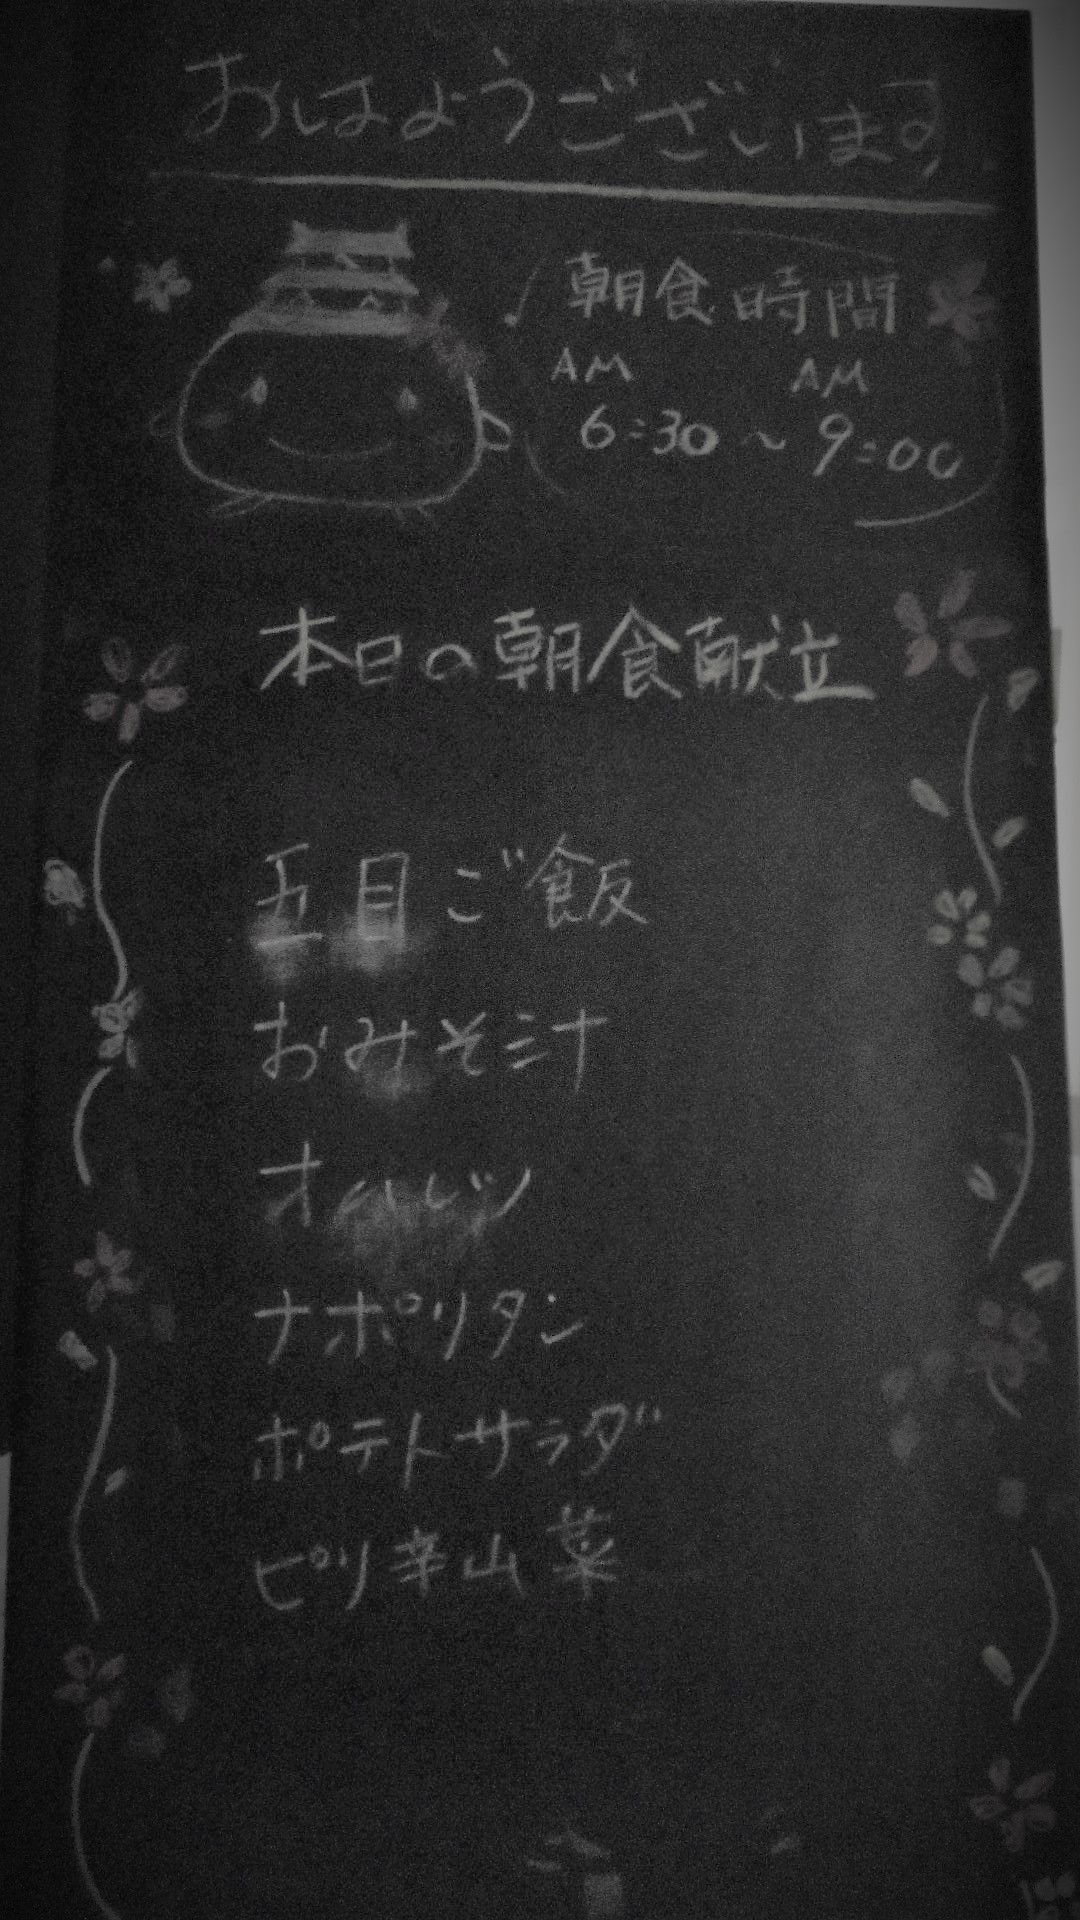 おはようございます
朝食時間
AM AM
6:30～9:00
本日の朝食献立
五目ご飯
おみそ汁
オムレツ
ナポリタン
ポテトサラダ
ピリ辛山菜